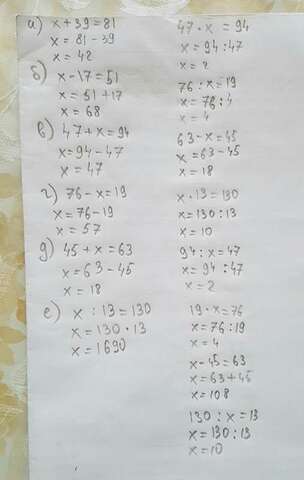 а) x + 39 = 81
x = 81 - 39
x = 42
б) x - 17 = 51
x = 51 + 17
x = 68
в) 47 + x = 94
x = 94 - 47
x = 47
г) 76 - x = 19
x = 76 - 19
x = 57
д) 45 + x = 63
x = 63 - 45
x = 18
е) x : 13 = 130
x = 130 · 13
x = 1690
47 · x = 94
x = 94 : 47
x = 2
76 : x = 19
x = 76 : 4
x = 4
63 - x = 45
x = 63 - 45
x = 18
x · 13 = 130
x = 130 : 13
x = 10
94 : x = 47
x = 94 : 47
x = 2
19 · x = 76
x = 76 : 19
x = 4
x - 45 = 63
x = 63 + 45
x = 108
130 : x = 13
x = 130 : 13
x = 10